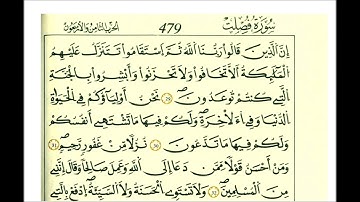 سُورَةُ فُصِّلَتْ 479 الحزب الثامن والأربعون
إِنَّ الَّذِينَ قَالُوا رَبُّنَا اللَّهُ ثُمَّ اسْتَقَامُوا تَتَنَزَّلُ عَلَيْهِمُ
الْمَلَٰئِكَةُ أَلَّا تَخَافُوا وَلَا تَحْزَنُوا وَأَبْشِرُوا بِالْجَنَّةِ
الَّتِي كُنتُمْ تُوعَدُونَ ۝ نَحْنُ أَوْلِيَاؤُكُمْ فِي الْحَيَوٰةِ
الدُّنْيَا وَفِي الْآخِرَةِ وَلَكُمْ فِيهَا مَا تَشْتَهِي أَنفُسُكُمْ
وَلَكُمْ فِيهَا مَا تَدَّعُونَ ۝ نُزُلًا مِّنْ غَفُورٍ رَّحِيمٍ ۝
وَمَنْ أَحْسَنُ قَوْلًا مِّمَّن دَعَا إِلَى اللَّهِ وَعَمِلَ صَالِحًا وَقَالَ إِنَّنِي
مِنَ الْمُسْلِمِينَ ۝ وَلَا تَسْتَوِي الْحَسَنَةُ وَلَا السَّيِّئَةُ ادْفَعْ بِالَّتِي